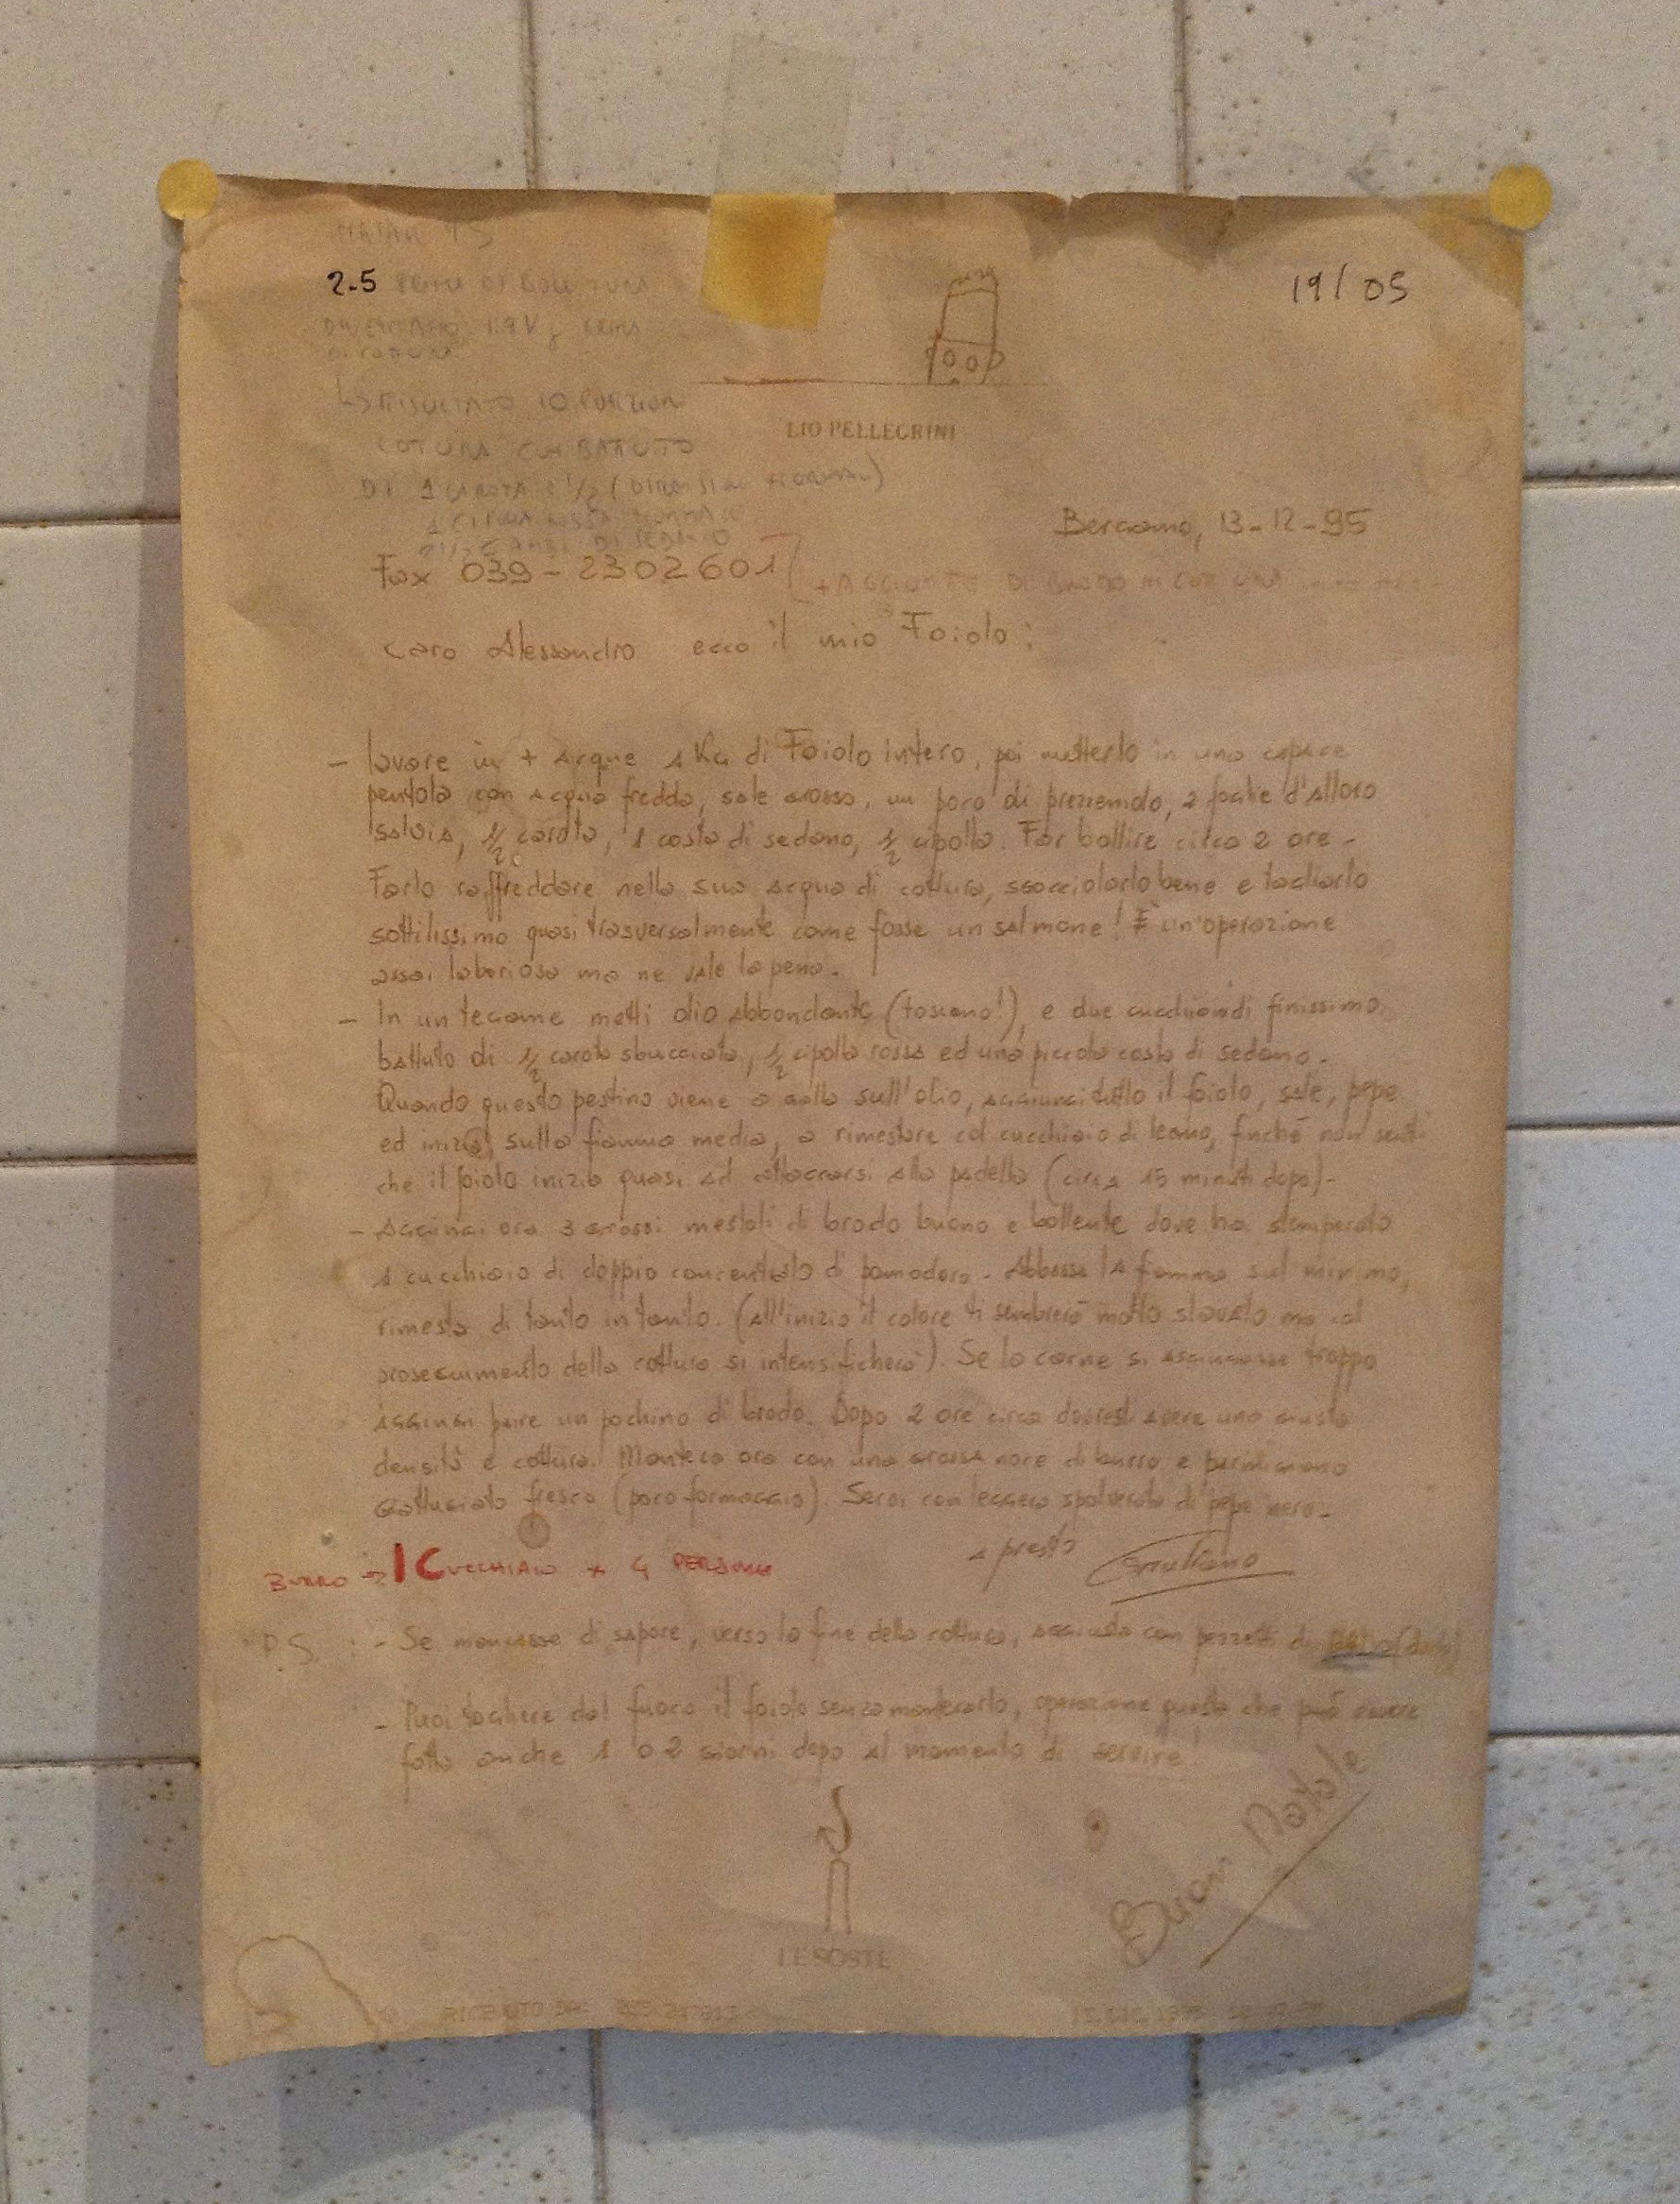 2.5
19/05
DIVENTATO 1.9 Kg
↳ RISULTATO 10 PORZIONI
COTTURA CON BATTUTO
DI 1 CAROTA E 1/2 (DIMENSIONI NORMALI)
DI SEDANO
LIO PELLEGRINI
Bergamo, 13-12-95
Fax 039-2302601
+ AGGIUNTE DI BRODO IN COTTURA
Caro Alessandro ecco il mio Foiolo:
- lavare in + acque 1 Kg di Foiolo intero, poi metterlo in una capace
pentola con acqua fredda, sale grosso, un poco di prezzemolo, 2 foglie d'alloro
salvia, 1/2 carota, 1 costa di sedano, 1/2 cipolla. Far bollire circa 2 ore -
Farlo raffreddare nella sua acqua di cottura, sgocciolarlo bene e tagliarlo
sottilissimo quasi trasversalmente come fosse un salmone! È un'operazione
assai laboriosa ma ne vale la pena.
- In un tegame metti olio abbondante (toscano!), e due cucchiai di finissimo
battuto di 1/2 carota sbucciata, 1/2 cipolla rossa ed una piccola costa di sedano.
Quando questo pestino viene a galla sull'olio, aggiungi il foiolo, sale, pepe
ed inizia, sulla fiamma media, a rimestare col cucchiaio di legno, finché non senti
che il foiolo inizia quasi ad attaccarsi alla padella (circa 15 minuti dopo)-
- Aggiungi ora 3 grossi mestoli di brodo buono e bollente dove hai stemperato
1 cucchiaio di doppio concentrato di pomodoro - Abbassa la fiamma sul minimo,
rimesta di tanto in tanto. (all'inizio il colore ti sembrerà molto slavato ma col
proseguimento della cottura si intensificherà). Se la carne si asciugasse troppo
aggiungi pure un pochino di brodo. Dopo 2 ore circa dovresti avere una giusta
densità e cottura. Manteca ora con una grossa noce di burro e parmigiano
grattugiato fresco (poco formaggio). Servi con leggera spolverata di pepe nero-
a presto
BURRO → 1 CUCCHIAIO x 4 PERSONE
P.S. : - Se mancasse di sapore, verso la fine della cottura, aggiusta con pezzetti di
- Puoi togliere dal fuoco il foiolo senza mantecarlo, operazione questa che può essere
fatta anche 1 o 2 giorni dopo al momento di servire!
Buon Natale
LE SOSTE
RICEVUTO DA: